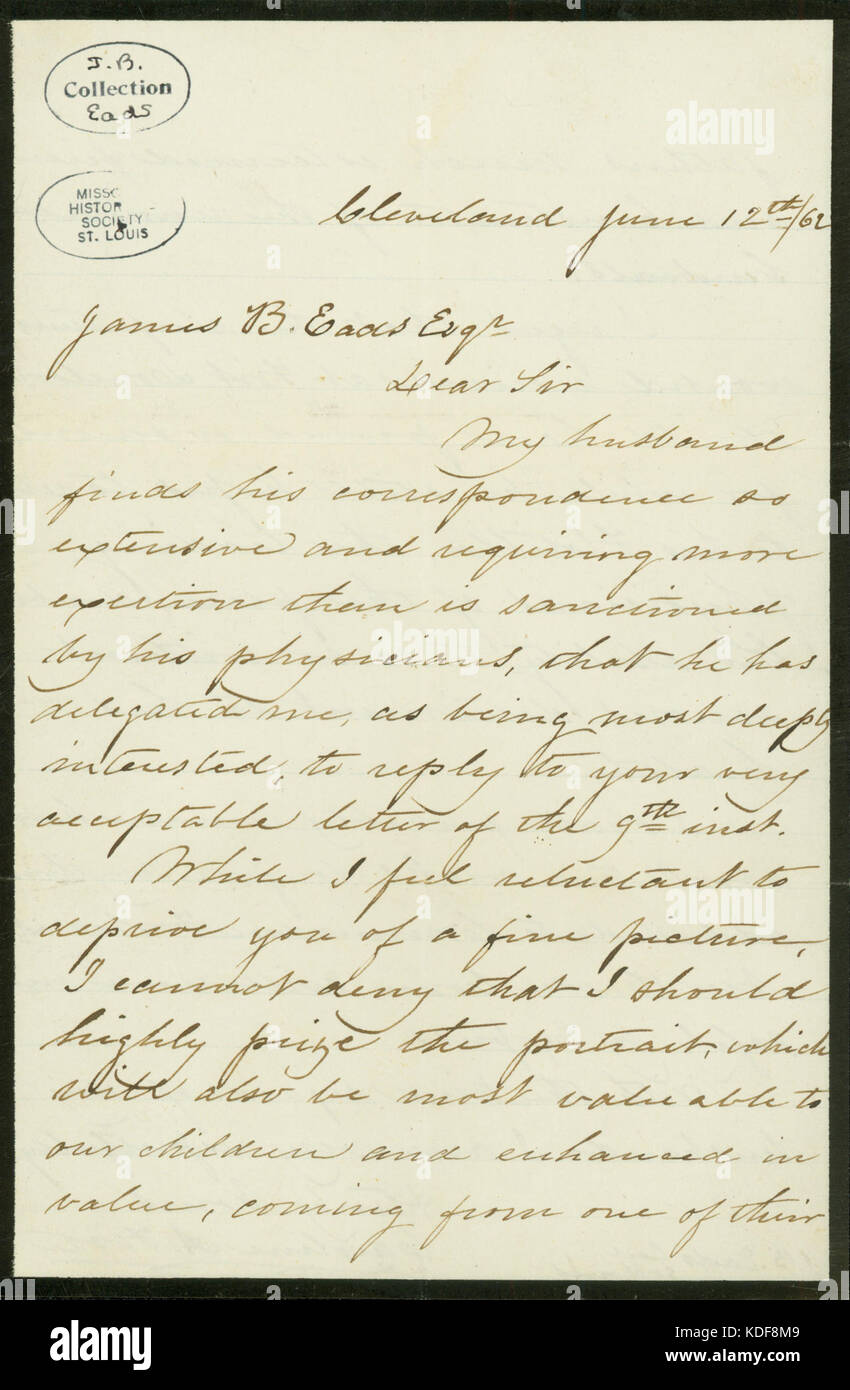 J. B.
Collection
Eads
MISSO
HISTOR
SOCIETY
ST. LOUIS
Cleveland June 12th/62
James B. Eads Esqr
Dear Sir
My husband
finds his correspondence so
extensive and requiring more
exertion than is sanctioned
by his physicians, that he has
delegated me, as being most deeply
interested, to reply to your very
acceptable letter of the 9th inst.
While I feel reluctant to
deprive you of a fine picture,
I cannot deny that I should
highly prize the portrait, which
will also be most valueable to
our children and enhanced in
value, coming from one of their
alamy
Image ID: KDF8M9
www.alamy.com